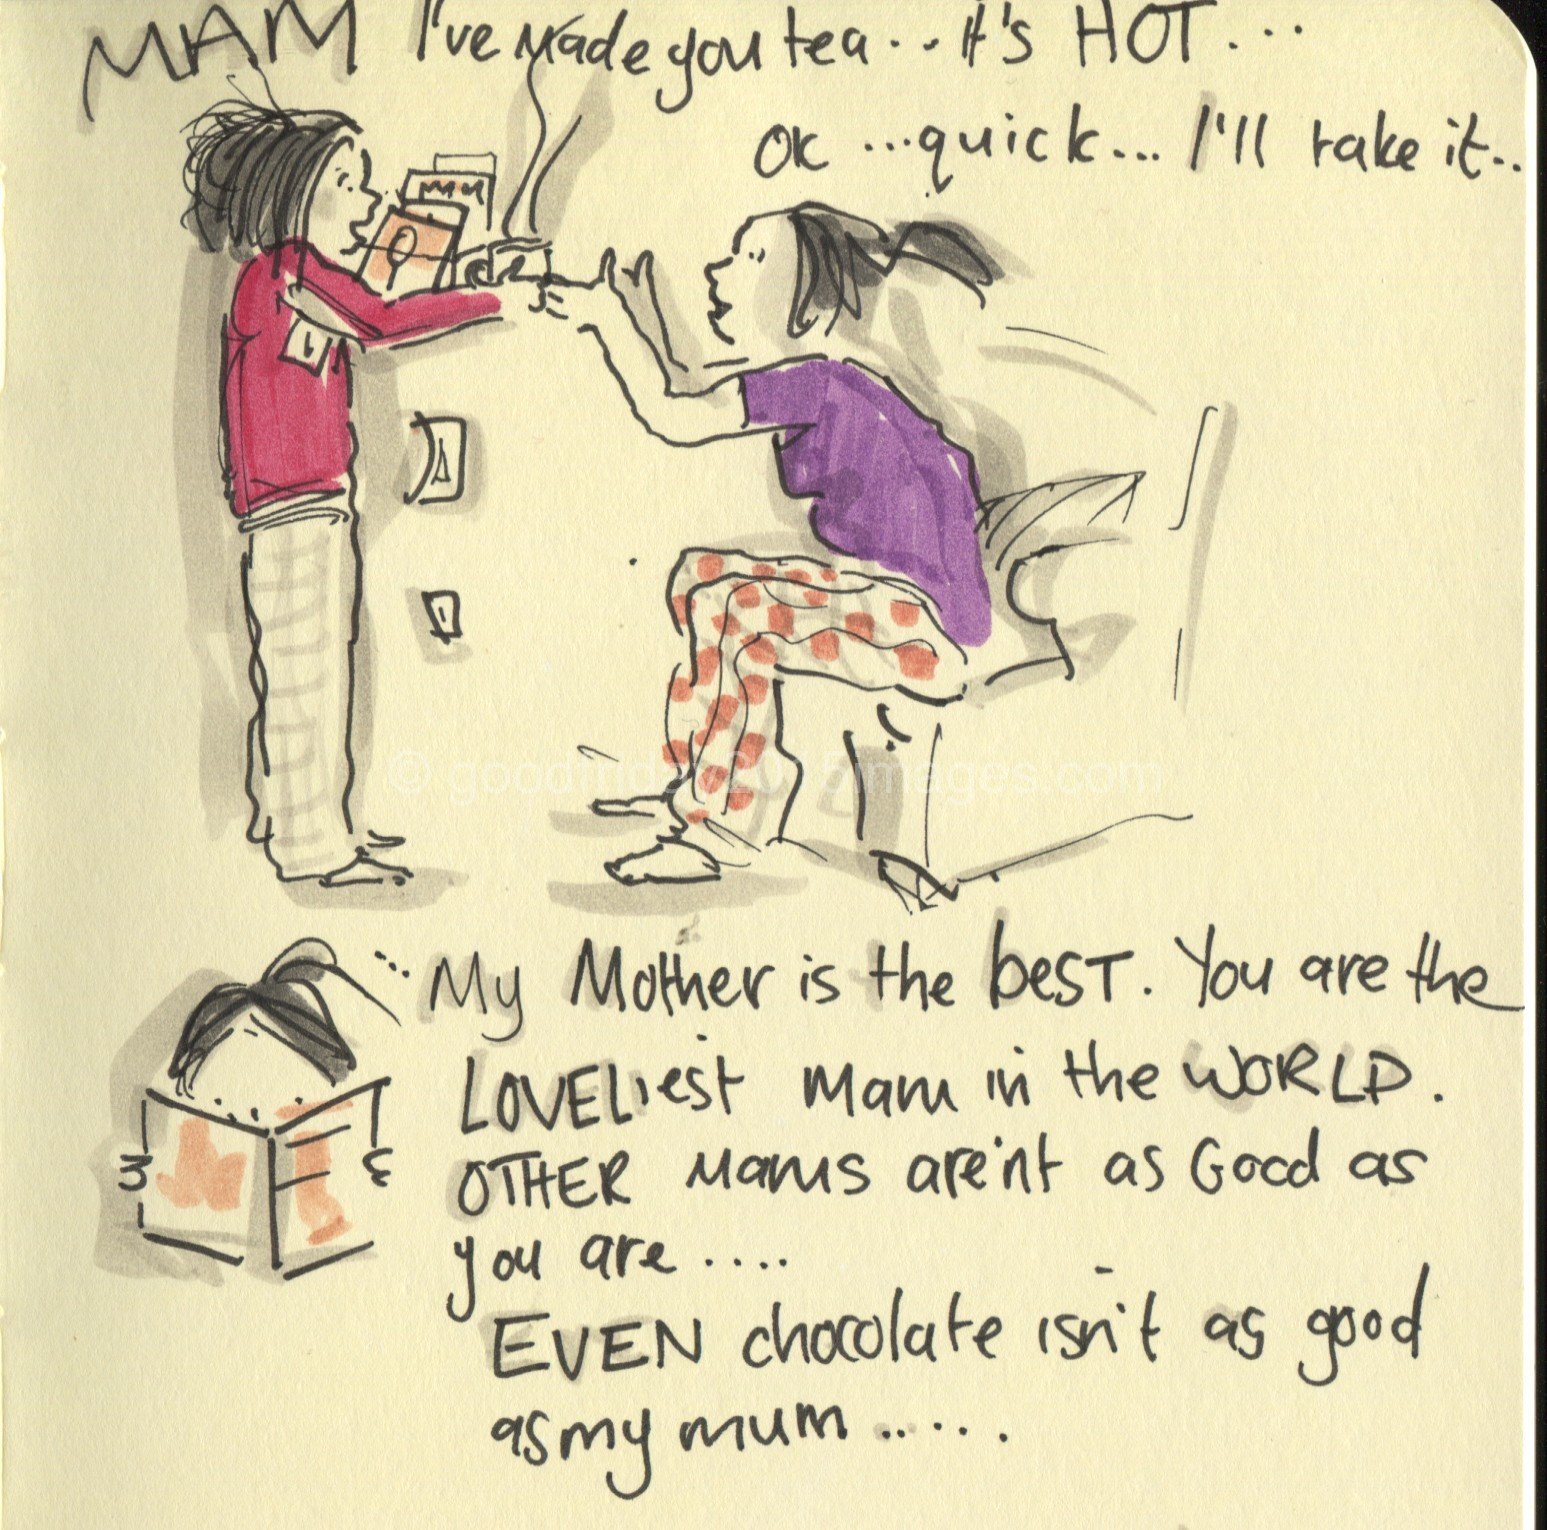 MAM I've made you tea... it's HOT...
OK ...quick... I'll take it..
...My Mother is the best. You are the
LOVELiest mam in the WORLD.
OTHER mams are'nt as Good as
you are....
EVEN chocolate isn't as good
as my mum .....